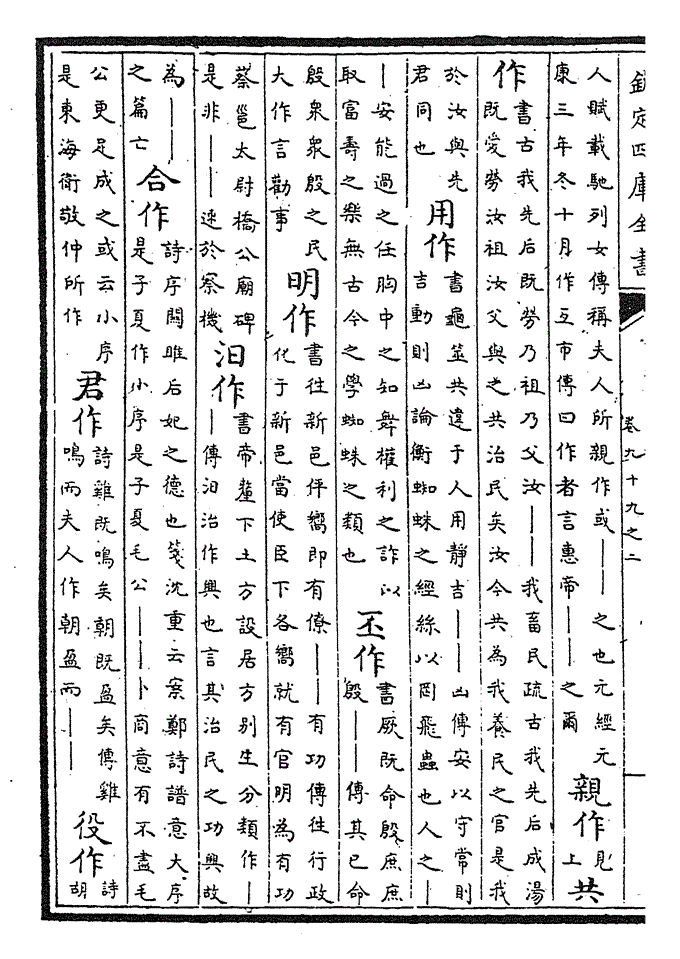 欽定四庫全書
卷九十九之二
人賦載馳列女傳稱夫人所親作或――之也元經元
康三年冬十月作互市傳曰作者言惠帝――之爾
親作
見
上
共
作
書古我先后既勞乃祖乃父汝――我畜民疏古我先后成湯
既愛勞汝祖汝父與之共治民矣汝今共為我養民之官是我
於汝與先
君同也
用作
書龜筮共違于人用靜吉――凶傳安以守常則
吉動則凶論衡蜘蛛之經絲以罔飛蟲也人之―
―安能過之任胸中之知舞權利之詐以
取富壽之樂無古今之學蜘蛛之類也
丕作
書厥既命殷庶庶
殷――傳其已命
殷衆衆殷之民
大作言勸事
明作
書往新邑伻嚮即有僚――有功傳往行政
化于新邑當使臣下各嚮就有官明為有功
蔡邕太尉橋公廟碑
是非――速於察機
汩作
書帝釐下土方設居方別生分類作―
―傳汩治作興也言其治民之功興故
為――
之篇亡
合作
詩序關雎后妃之德也箋沈重云案鄭詩譜意大序
是子夏作小序是子夏毛公――卜商意有不盡毛
公更足成之或云小序
是東海衛敬仲所作
君作
詩雞既鳴矣朝既盈矣傳雞
鳴而夫人作朝盈而――
役作
詩
胡